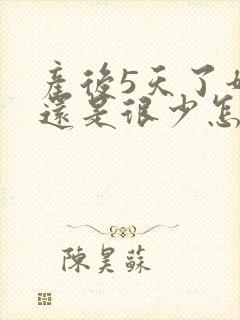 產後5天了
還是很少怎
陳昊蘇